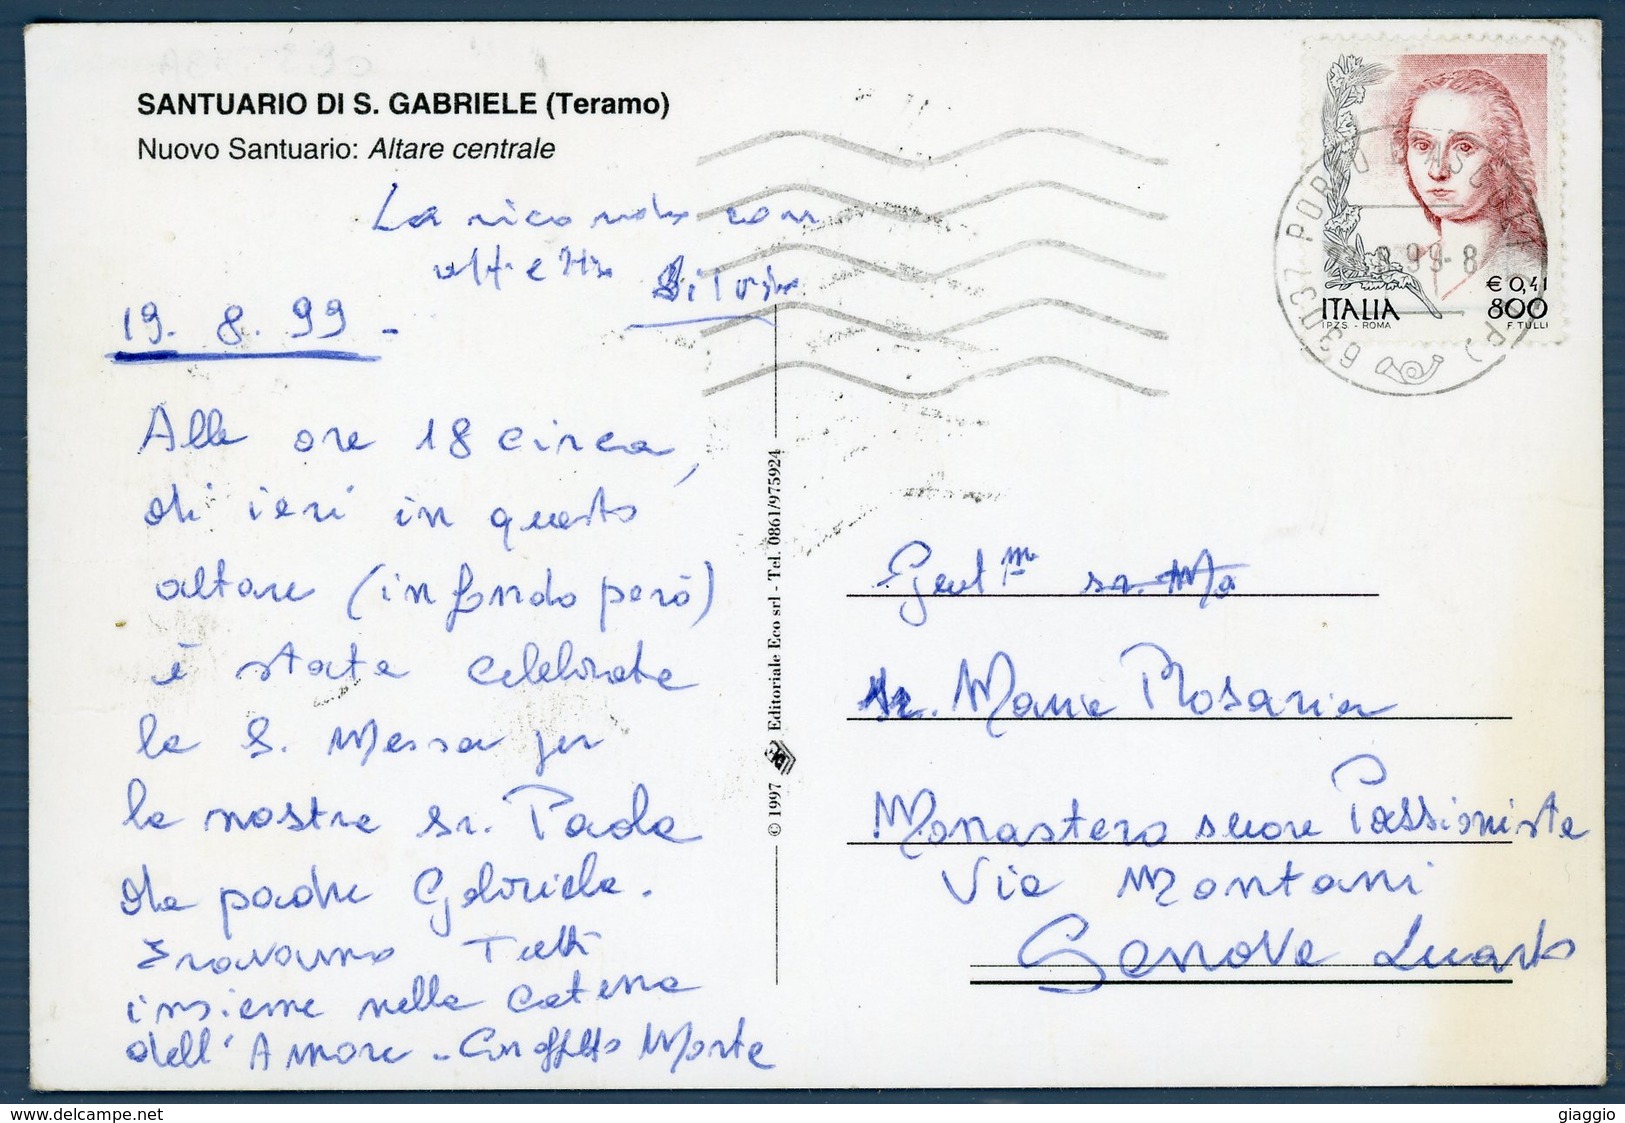 SANTUARIO DI S. GABRIELE (Teramo)
Nuovo Santuario: Altare centrale
La ricordo con
affetto
19. 8. 99 -
Alle ore 18 circa,
di ieri in questo
altare (in fondo però)
è stata celebrata
la S. Messa per
la nostra sr. Paola
da padre Gabriele.
Eravamo Tutti
insieme nella catena
dell'Amore - Con affetto
© 1997 Editoriale Eco srl - Tel. 0861/975924
ITALIA
I.P.Z.S. - ROMA
€ 0,41
800
F. TULLI
63037 POR
8 99-8
AP)
Gent.ma
sr. Maria Rosaria
Monastero suore Passioniste
Via Montani
Genova Quarto
delcampe.net
giaggio